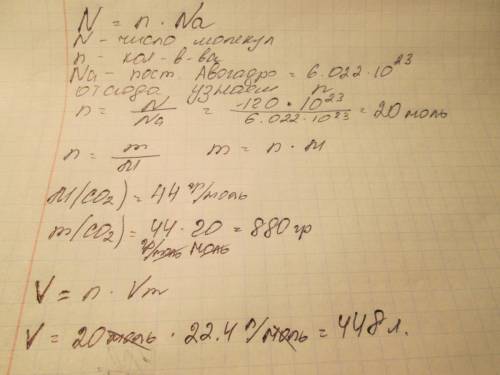 N = n · Na
N - число молекул
n - кол-в-ва
Na - пост. Авогадро = 6.022·10²³
отсюда узнаем n
n = N/Na = 120·10²³/6.022·10²³ = 20 моль
n = m/M m = n · M
M(CO₂) = 44 гр/моль
m(CO₂) = 44 гр/моль · 20 моль = 880 гр
V = n · Vm
V = 20 моль · 22.4 л/моль = 448 л.